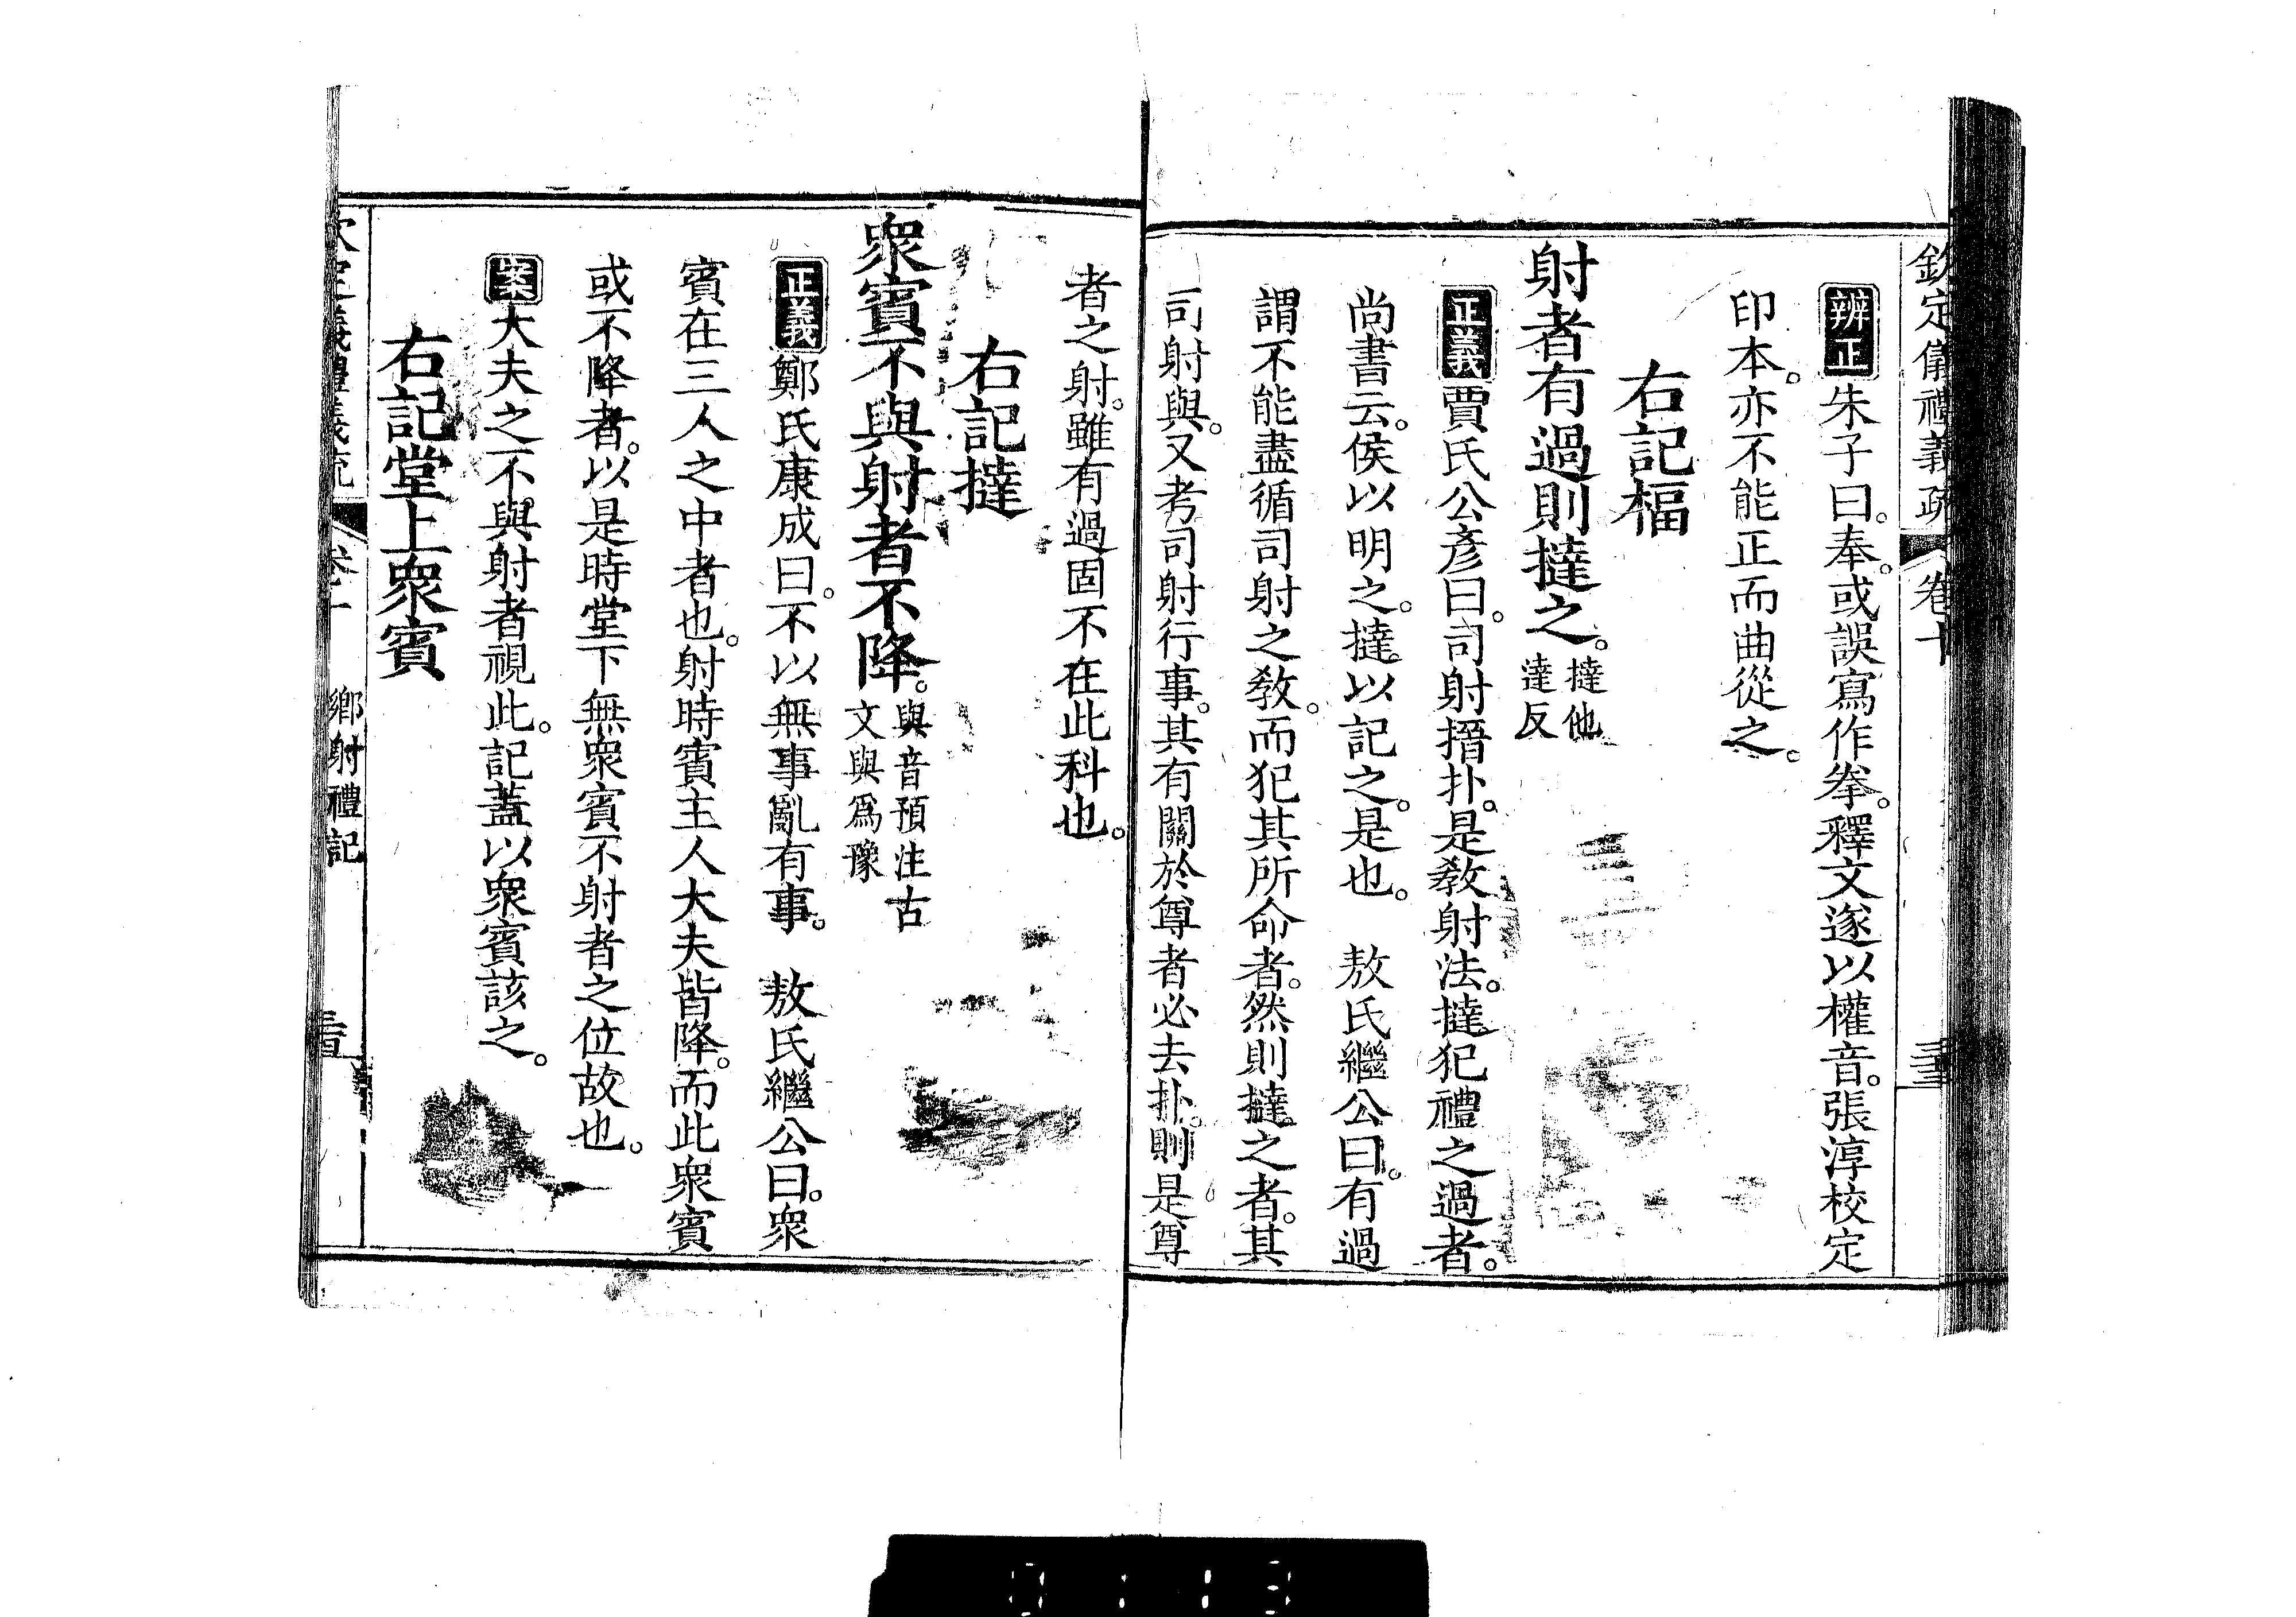 欽定儀禮義疏 卷十
辨正朱子曰。奉。或誤寫作拳。釋文遂以權音。張淳校定
印本。亦不能正而曲從之。
右記楅
射者有過則撻之。撻他
達反
正義賈氏公彥曰。司射搢扑。是教射法。撻犯禮之過者。
尚書云。侯以明之。撻以記之。是也。 敖氏繼公曰。有過
謂不能盡循司射之教。而犯其所命者。然則撻之者。其
司射與。又考司射行事。其有關於尊者必去扑。則是尊
者之射。雖有過固不在此科也。
右記撻
衆賓不與射者不降。與音預注古
文與爲豫
正義鄭氏康成曰。不以無事亂有事。 敖氏繼公曰。衆
賓在三人之中者也。射時賓主人大夫皆降。而此衆賓
或不降者。以是時堂下無衆賓不射者之位故也。
案大夫之不與射者視此。記蓋以衆賓該之。
右記堂上衆賓
欽定儀禮義疏 卷十 鄉射禮記
0113